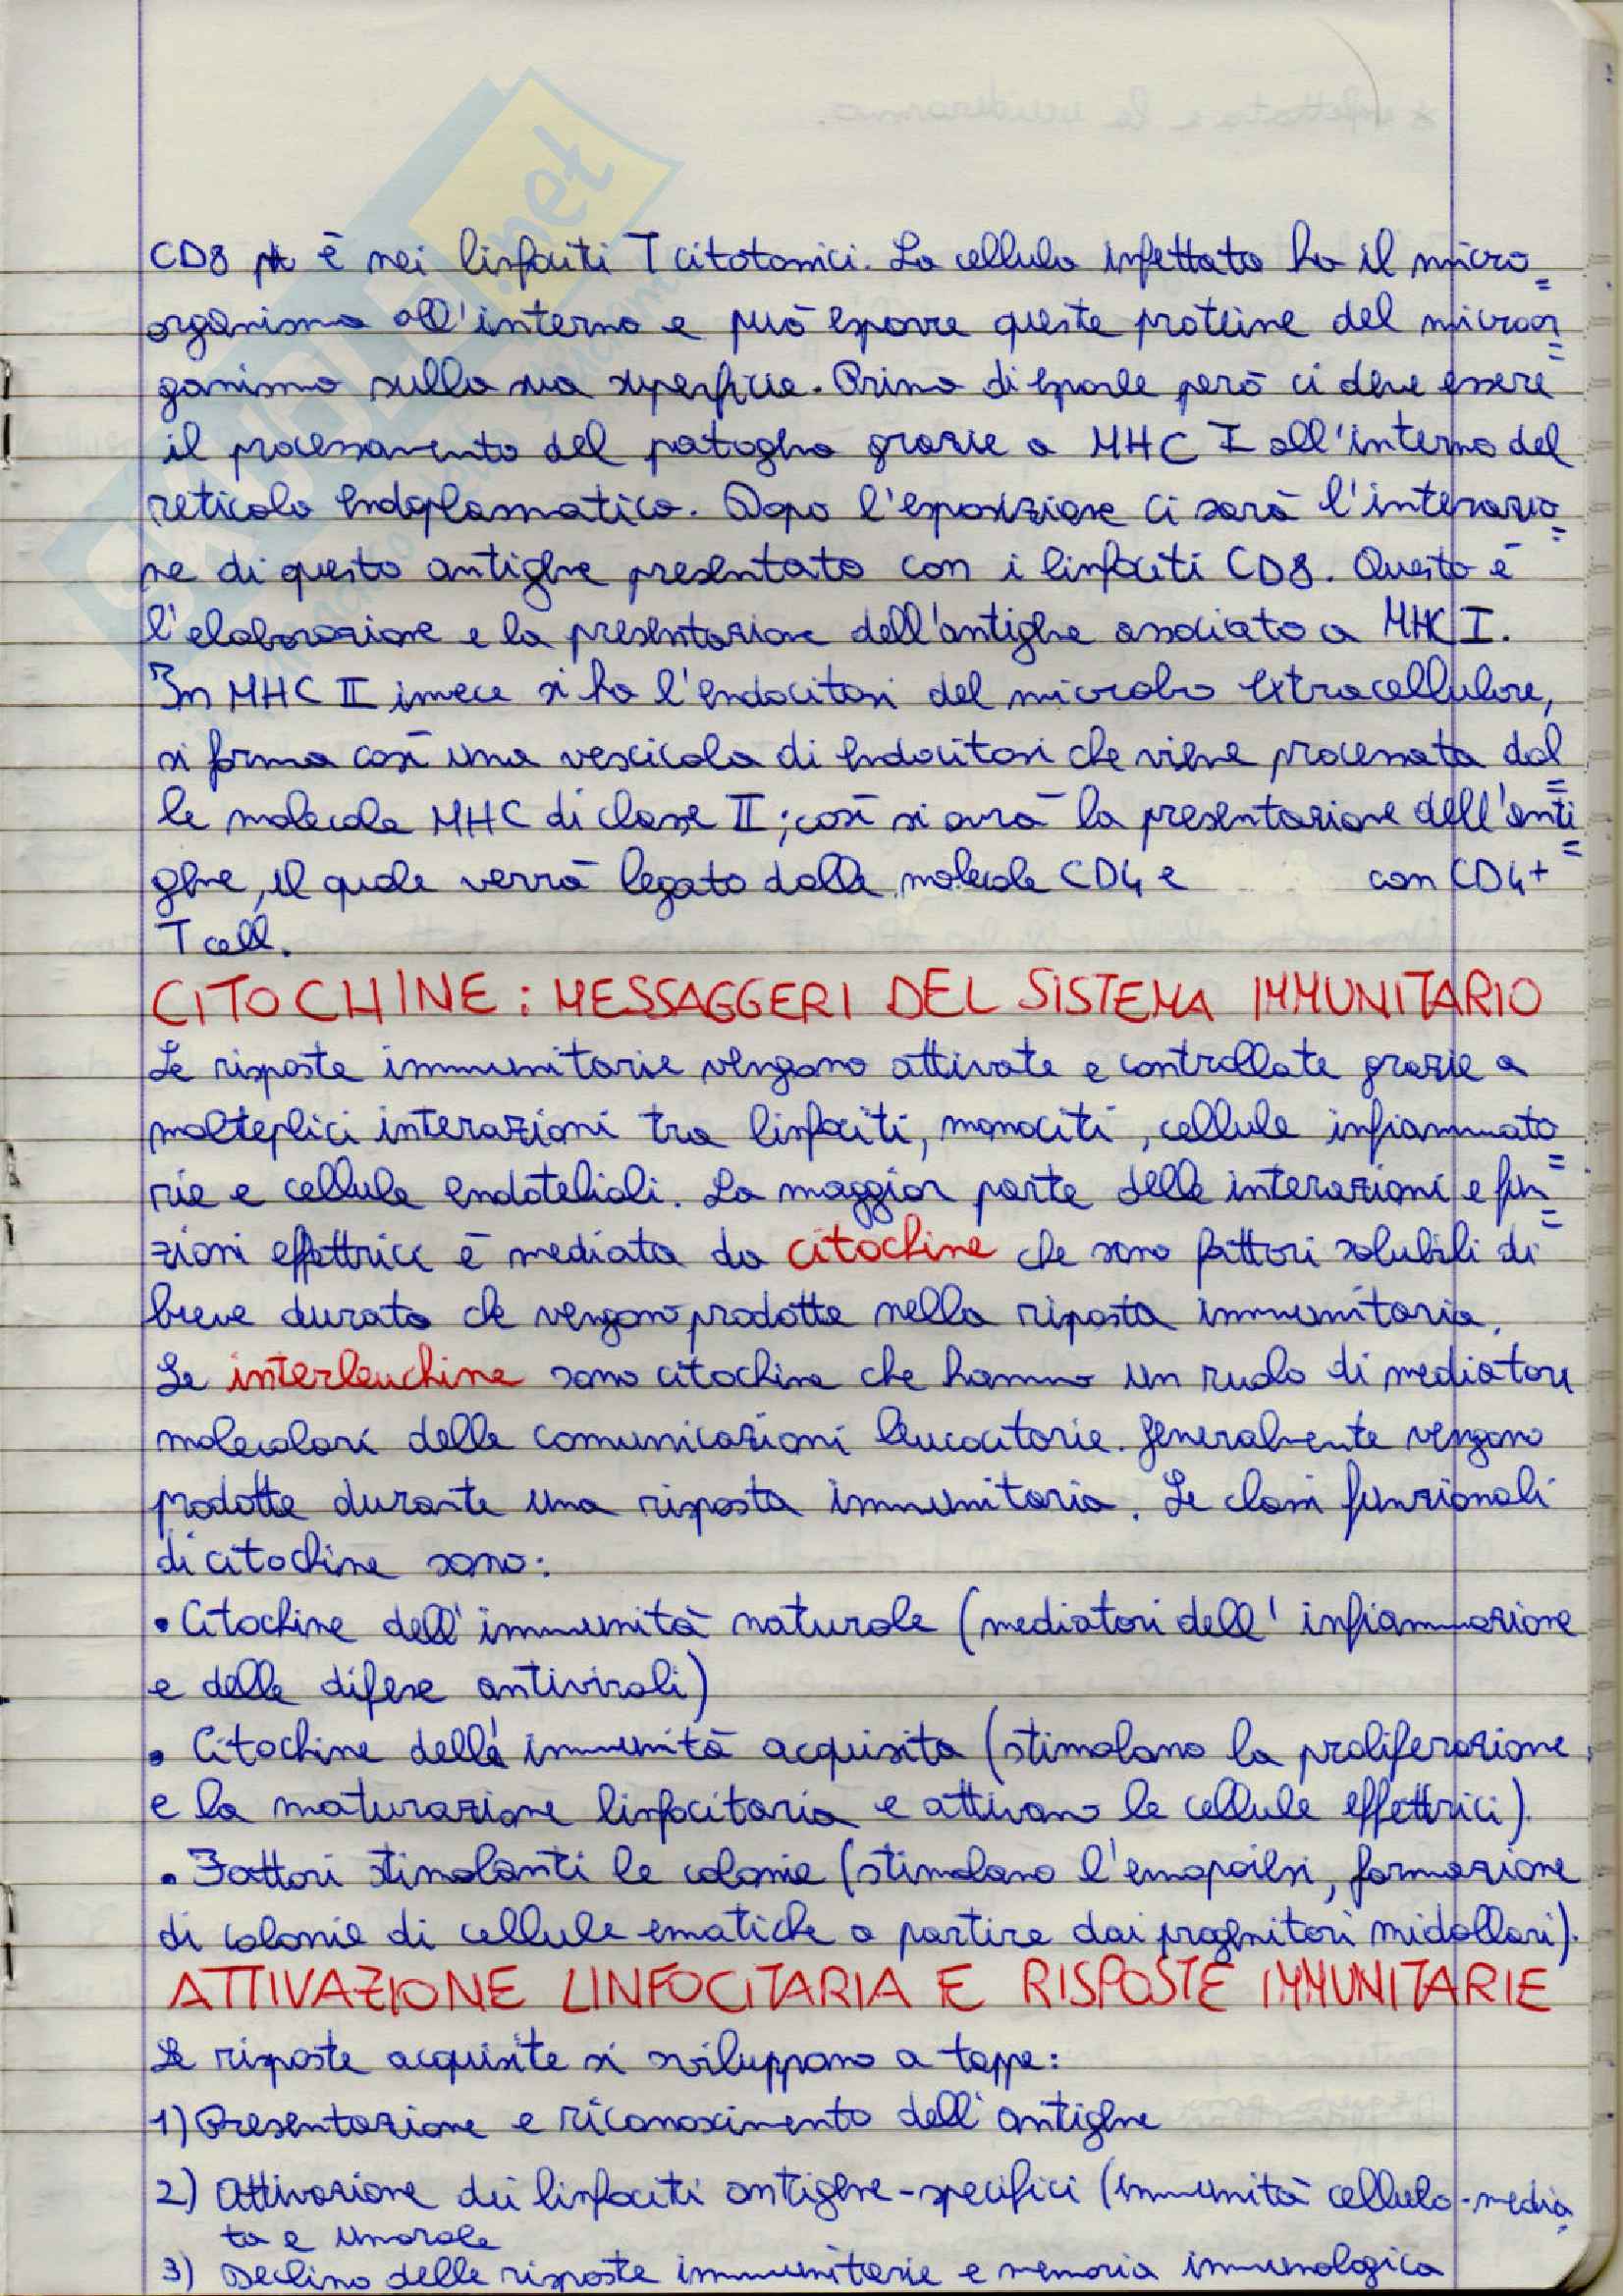 CD8 è nei linfociti T citotossici. La cellula infettata ha il micro=
organismo all'interno e può esporre queste proteine del microor=
ganismo sulla sua superficie. Prima di esporle però ci deve essere
il processamento del patogeno grazie a MHC I all'interno del
reticolo endoplasmatico. Dopo l'esposizione ci sarà l'interazio=
ne di questo antigene presentato con i linfociti CD8. Questo è
l'elaborazione e la presentazione dell'antigene associato a MHC I.
In MHC II invece si ha l'endocitosi del microbo extracellulare,
si forma così una vescicola di endocitosi che viene processata dal=
le molecole MHC di classe II; così si avrà la presentazione dell'anti=
gene, il quale verrà legato dalle molecole CD4 e con CD4+
T cell.
CITOCHINE: MESSAGGERI DEL SISTEMA IMMUNITARIO
Le risposte immunitarie vengono attivate e controllate grazie a
molteplici interazioni tra linfociti, monociti, cellule infiammato=
rie e cellule endoteliali. La maggior parte delle interazioni e fun=
zioni effettrici è mediata da citochine che sono fattori solubili di
breve durata che vengono prodotte nella risposta immunitaria.
Le interleuchine sono citochine che hanno un ruolo di mediatori
molecolari delle comunicazioni leucocitarie. Generalmente vengono
prodotte durante una risposta immunitaria. Le classi funzionali
di citochine sono:
• Citochine dell'immunità naturale (mediatori dell'infiammazione
e delle difese antivirali)
• Citochine dell'immunità acquisita (stimolano la proliferazione
e la maturazione linfocitaria e attivano le cellule effettrici).
• Fattori stimolanti le colonie (stimolano l'emopoiesi, formazione
di colonie di cellule ematiche a partire dai progenitori midollari).
ATTIVAZIONE LINFOCITARIA E RISPOSTE IMMUNITARIE
Le risposte acquisite si sviluppano a tappe:
1) Presentazione e riconoscimento dell'antigene
2) Attivazione dei linfociti antigene-specifici (immunità cellulo-media=
ta e umorale
3) Declino delle risposte immunitarie e memoria immunologica